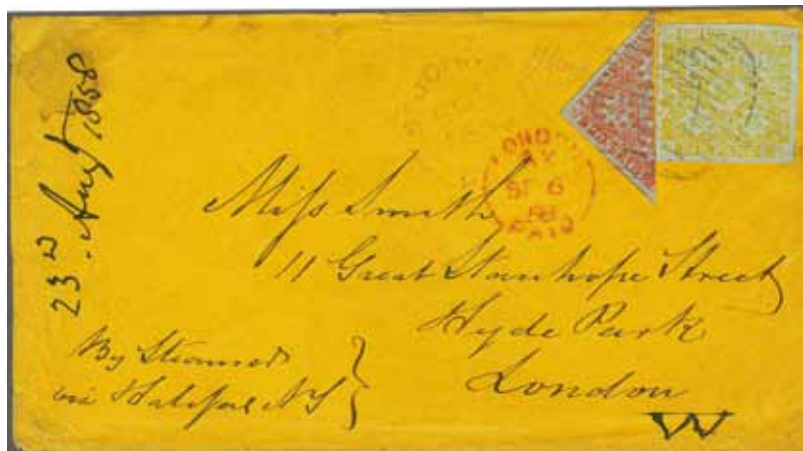 23rd. Augt 1858
ST. JOHN'S
LONDON
AY
SP 6
58
PAID
Miss Smith
11 Great Stanhope Street
Hyde Park
London
W
By Steamer
via Halifax NS